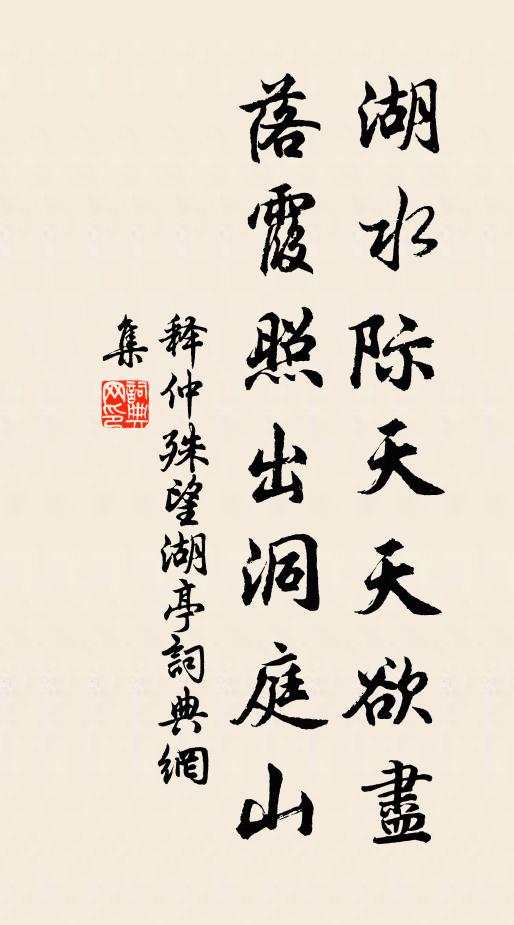 湖水际天天欲盡
落霞照出洞庭山
释仲殊望湖亭詞典網
集
詞典
网印